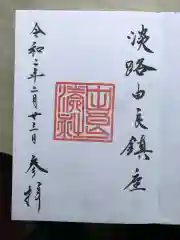 淡路由良鎮座
由良湊神社
令和二年二月廿三日参拝